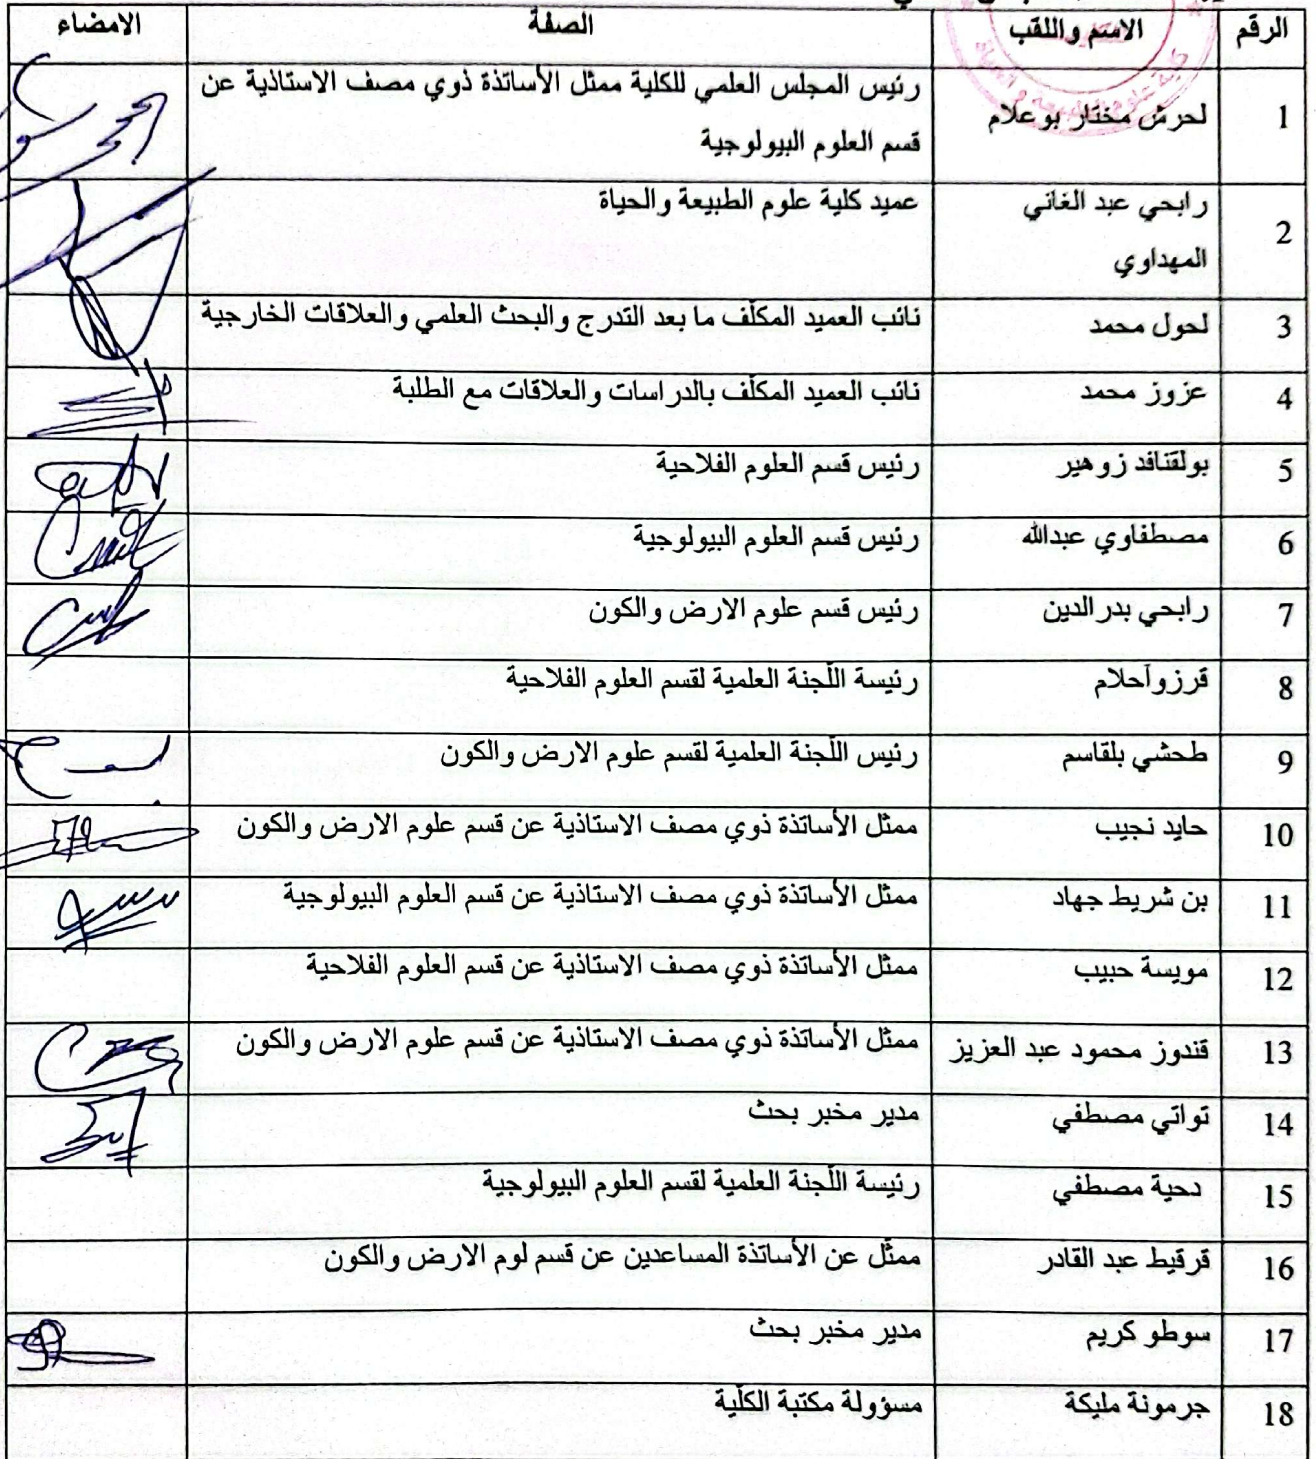 الرقم الاسم واللقب الصفة الامضاء
1 لحرش مختار بوعلام رئيس المجلس العلمي للكلية ممثل الأساتذة ذوي مصف الاستاذية عن
قسم العلوم البيولوجية
2 رابحي عبد الغاني عميد كلية علوم الطبيعة والحياة
المهداوي
3 لحول محمد نائب العميد المكلّف ما بعد التدرج والبحث العلمي والعلاقات الخارجية
4 عزوز محمد نائب العميد المكلّف بالدراسات والعلاقات مع الطلبة
5 بولقنافد زوهير رئيس قسم العلوم الفلاحية
6 مصطفاوي عبدالله رئيس قسم العلوم البيولوجية
7 رابحي بدر الدين رئيس قسم علوم الارض والكون
8 قرزوأحلام رئيسة اللّجنة العلمية لقسم العلوم الفلاحية
9 طحشي بلقاسم رئيس اللّجنة العلمية لقسم علوم الارض والكون
10 حايد نجيب ممثّل الأساتذة ذوي مصف الاستاذية عن قسم علوم الارض والكون
11 بن شريط جهاد ممثّل الأساتذة ذوي مصف الاستاذية عن قسم العلوم البيولوجية
12 مويسة حبيب ممثّل الأساتذة ذوي مصف الاستاذية عن قسم العلوم الفلاحية
13 قندوز محمود عبد العزيز ممثّل الأساتذة ذوي مصف الاستاذية عن قسم علوم الارض والكون
14 تواتي مصطفي مدير مخبر بحث
15 دحية مصطفي رئيسة اللّجنة العلمية لقسم العلوم البيولوجية
16 قرقيط عبد القادر ممثّل عن الأساتذة المساعدين عن قسم لوم الارض والكون
17 سوطو كريم مدير مخبر بحث
18 جرمونة مليكة مسؤولة مكتبة الكلّية